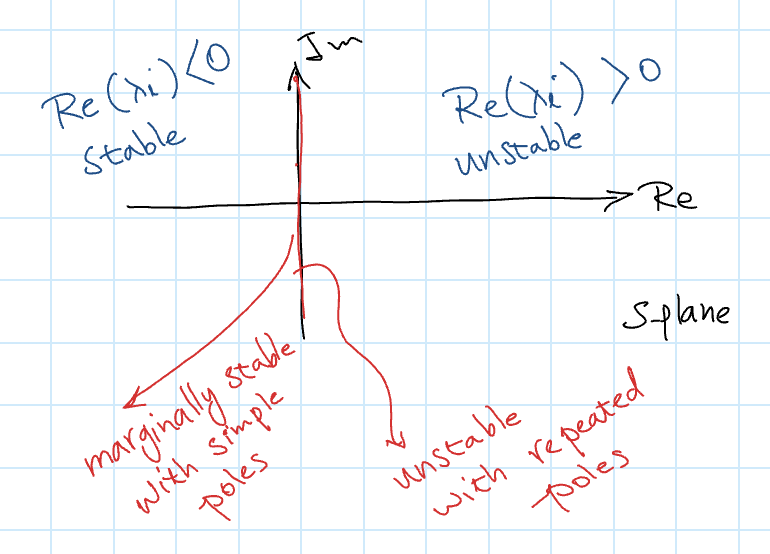 Im
Re(λi)<0
stable
Re(λi) >0
unstable
Re
S-plane
marginally stable
with simple
poles
unstable
with repeated
poles